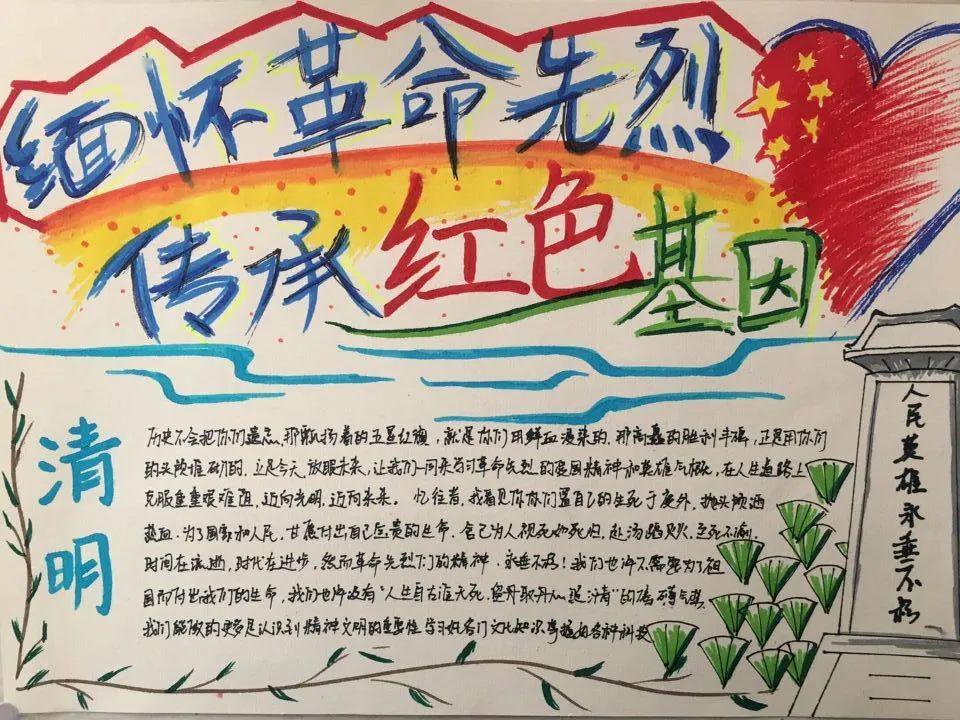 缅怀革命先烈
传承红色基因
清明
历史不会把你们遗忘,那飘扬着的五星红旗,就是你们用鲜血浸染的,那高矗的胜利丰碑,正是用你们
的头颅堆砌的,立足今天,放眼未来,让我们一同来学习革命先烈的爱国精神和英雄气概,在人生道路上
克服重重艰难险阻,迈向光明,迈向未来。忆往昔,我看见你们置自己的生死于度外,抛头颅洒
热血,为了国家和人民,甘愿付出自己宝贵的生命,舍己为人视死如归,赴汤蹈火,至死不渝,
时间在流逝,时代在进步,然而革命先烈们的精神,永垂不朽!我们也许不需要为了祖
国而付出我们的生命,我们也许没有“人生自古谁无死,留丹取丹心照汗青”的磅礴气势,
我们能做的更多是认识到精神文明的重要性学习好各门文化知识掌握好各种科技
人民英雄永垂不朽